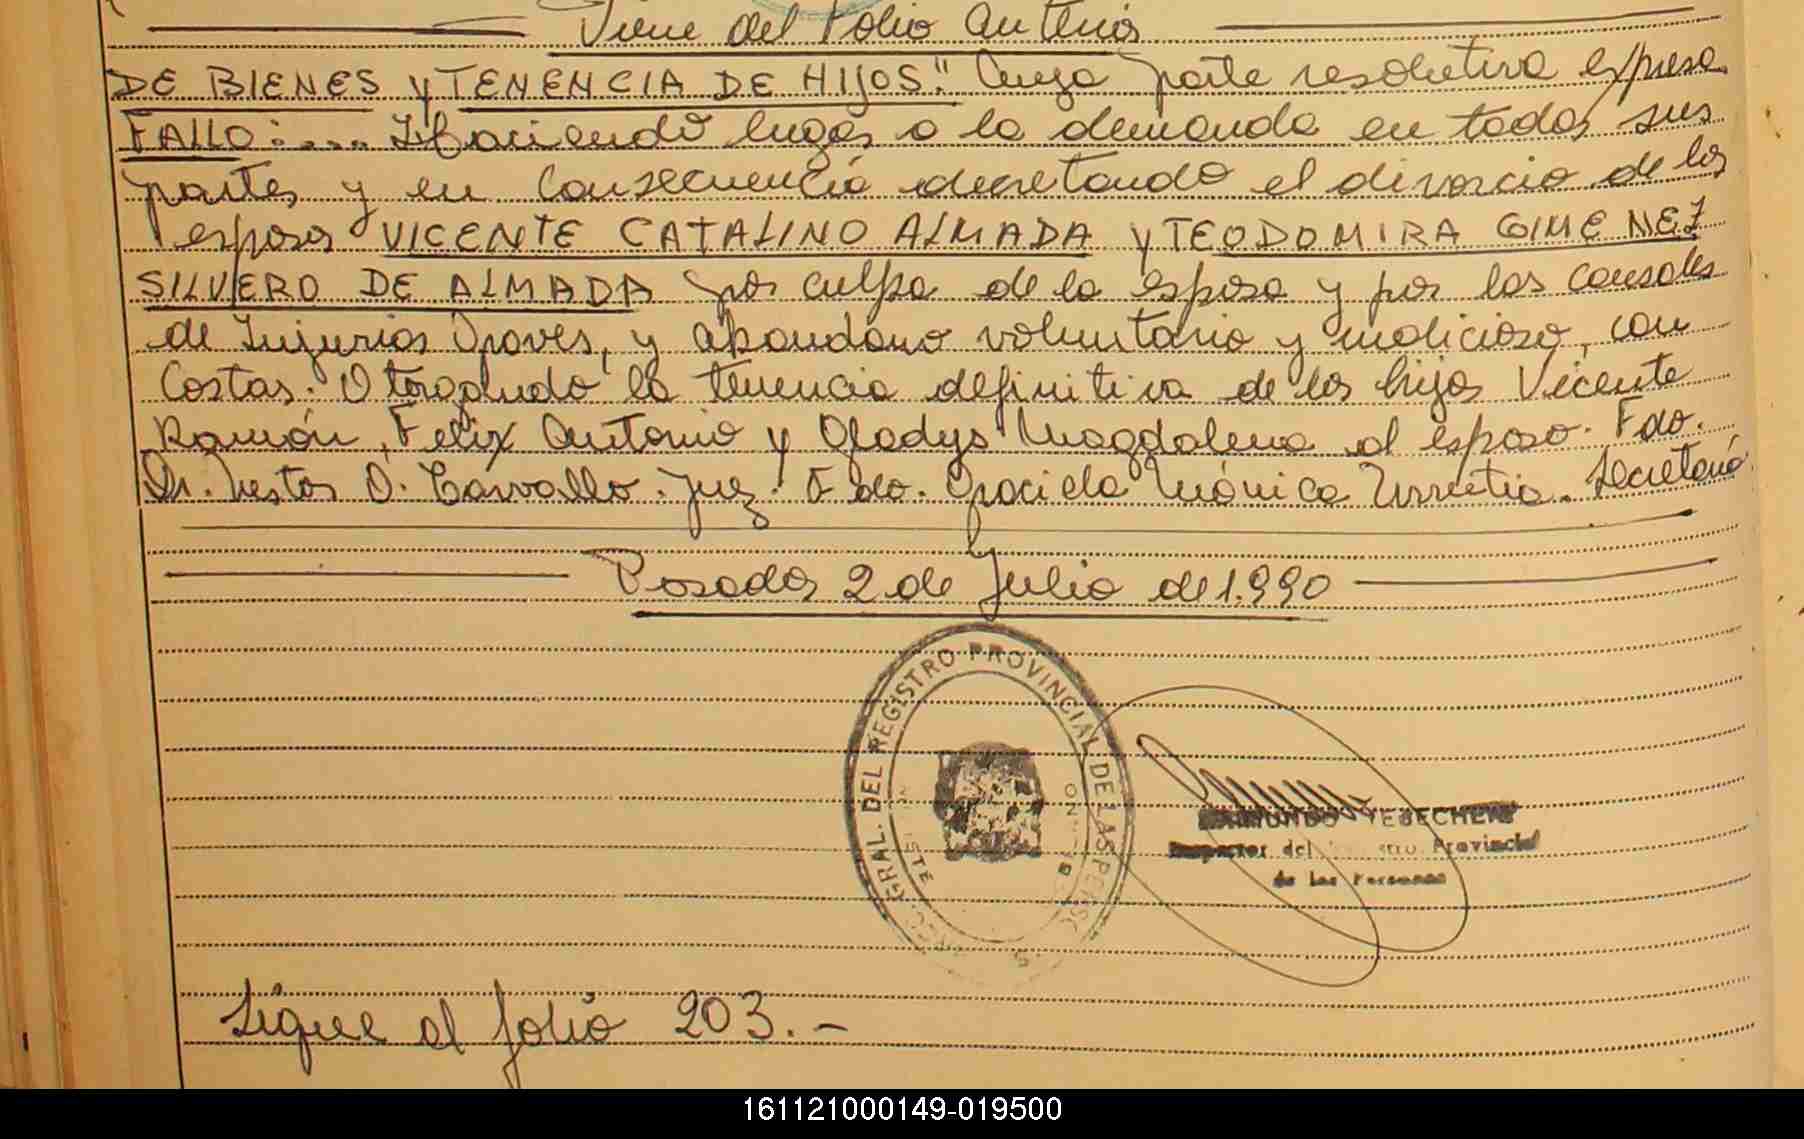 Viene del Folio Anterior
DE BIENES y TENENCIA DE HIJOS". Cuya parte resolutiva expresa
FALLO: .... Haciendo lugar a la demanda en todas sus
partes y en consecuencia decretando el divorcio de los
esposos VICENTE CATALINO ALMADA y TEODOMIRA GIMENEZ
SILVERO DE ALMADA por culpa de la esposa y por las causales
de Injurias Graves, y abandono voluntario y malicioso, con
Costas. Otorgando la tenencia definitiva de los hijos Vicente
Ramón, Felix Antonio y Gladys Magdalena al esposo. Fdo.
Dr. Nestor O. Carvallo. Juez. Fdo. Graciela Mónica Urrutia. Secretaria
Posadas 2 de Julio de 1.990
GRAL. DEL REGISTRO PROVINCIAL DE LAS PERS
Inspector del Provincial
de las Personas
Sigue al folio 203.-
161121000149-019500